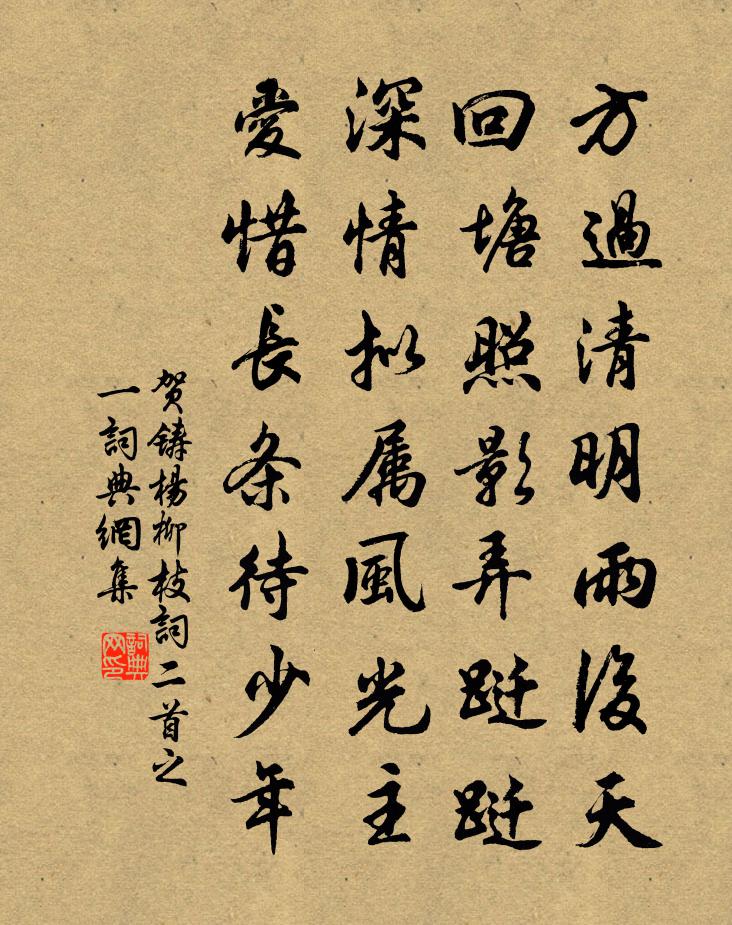 方過清明雨後天
回塘照影弄跹跹
深情拟属風光主
愛惜長条待少年
贺鑄楊柳枝詞二首之
一詞典網集
詞典
网印